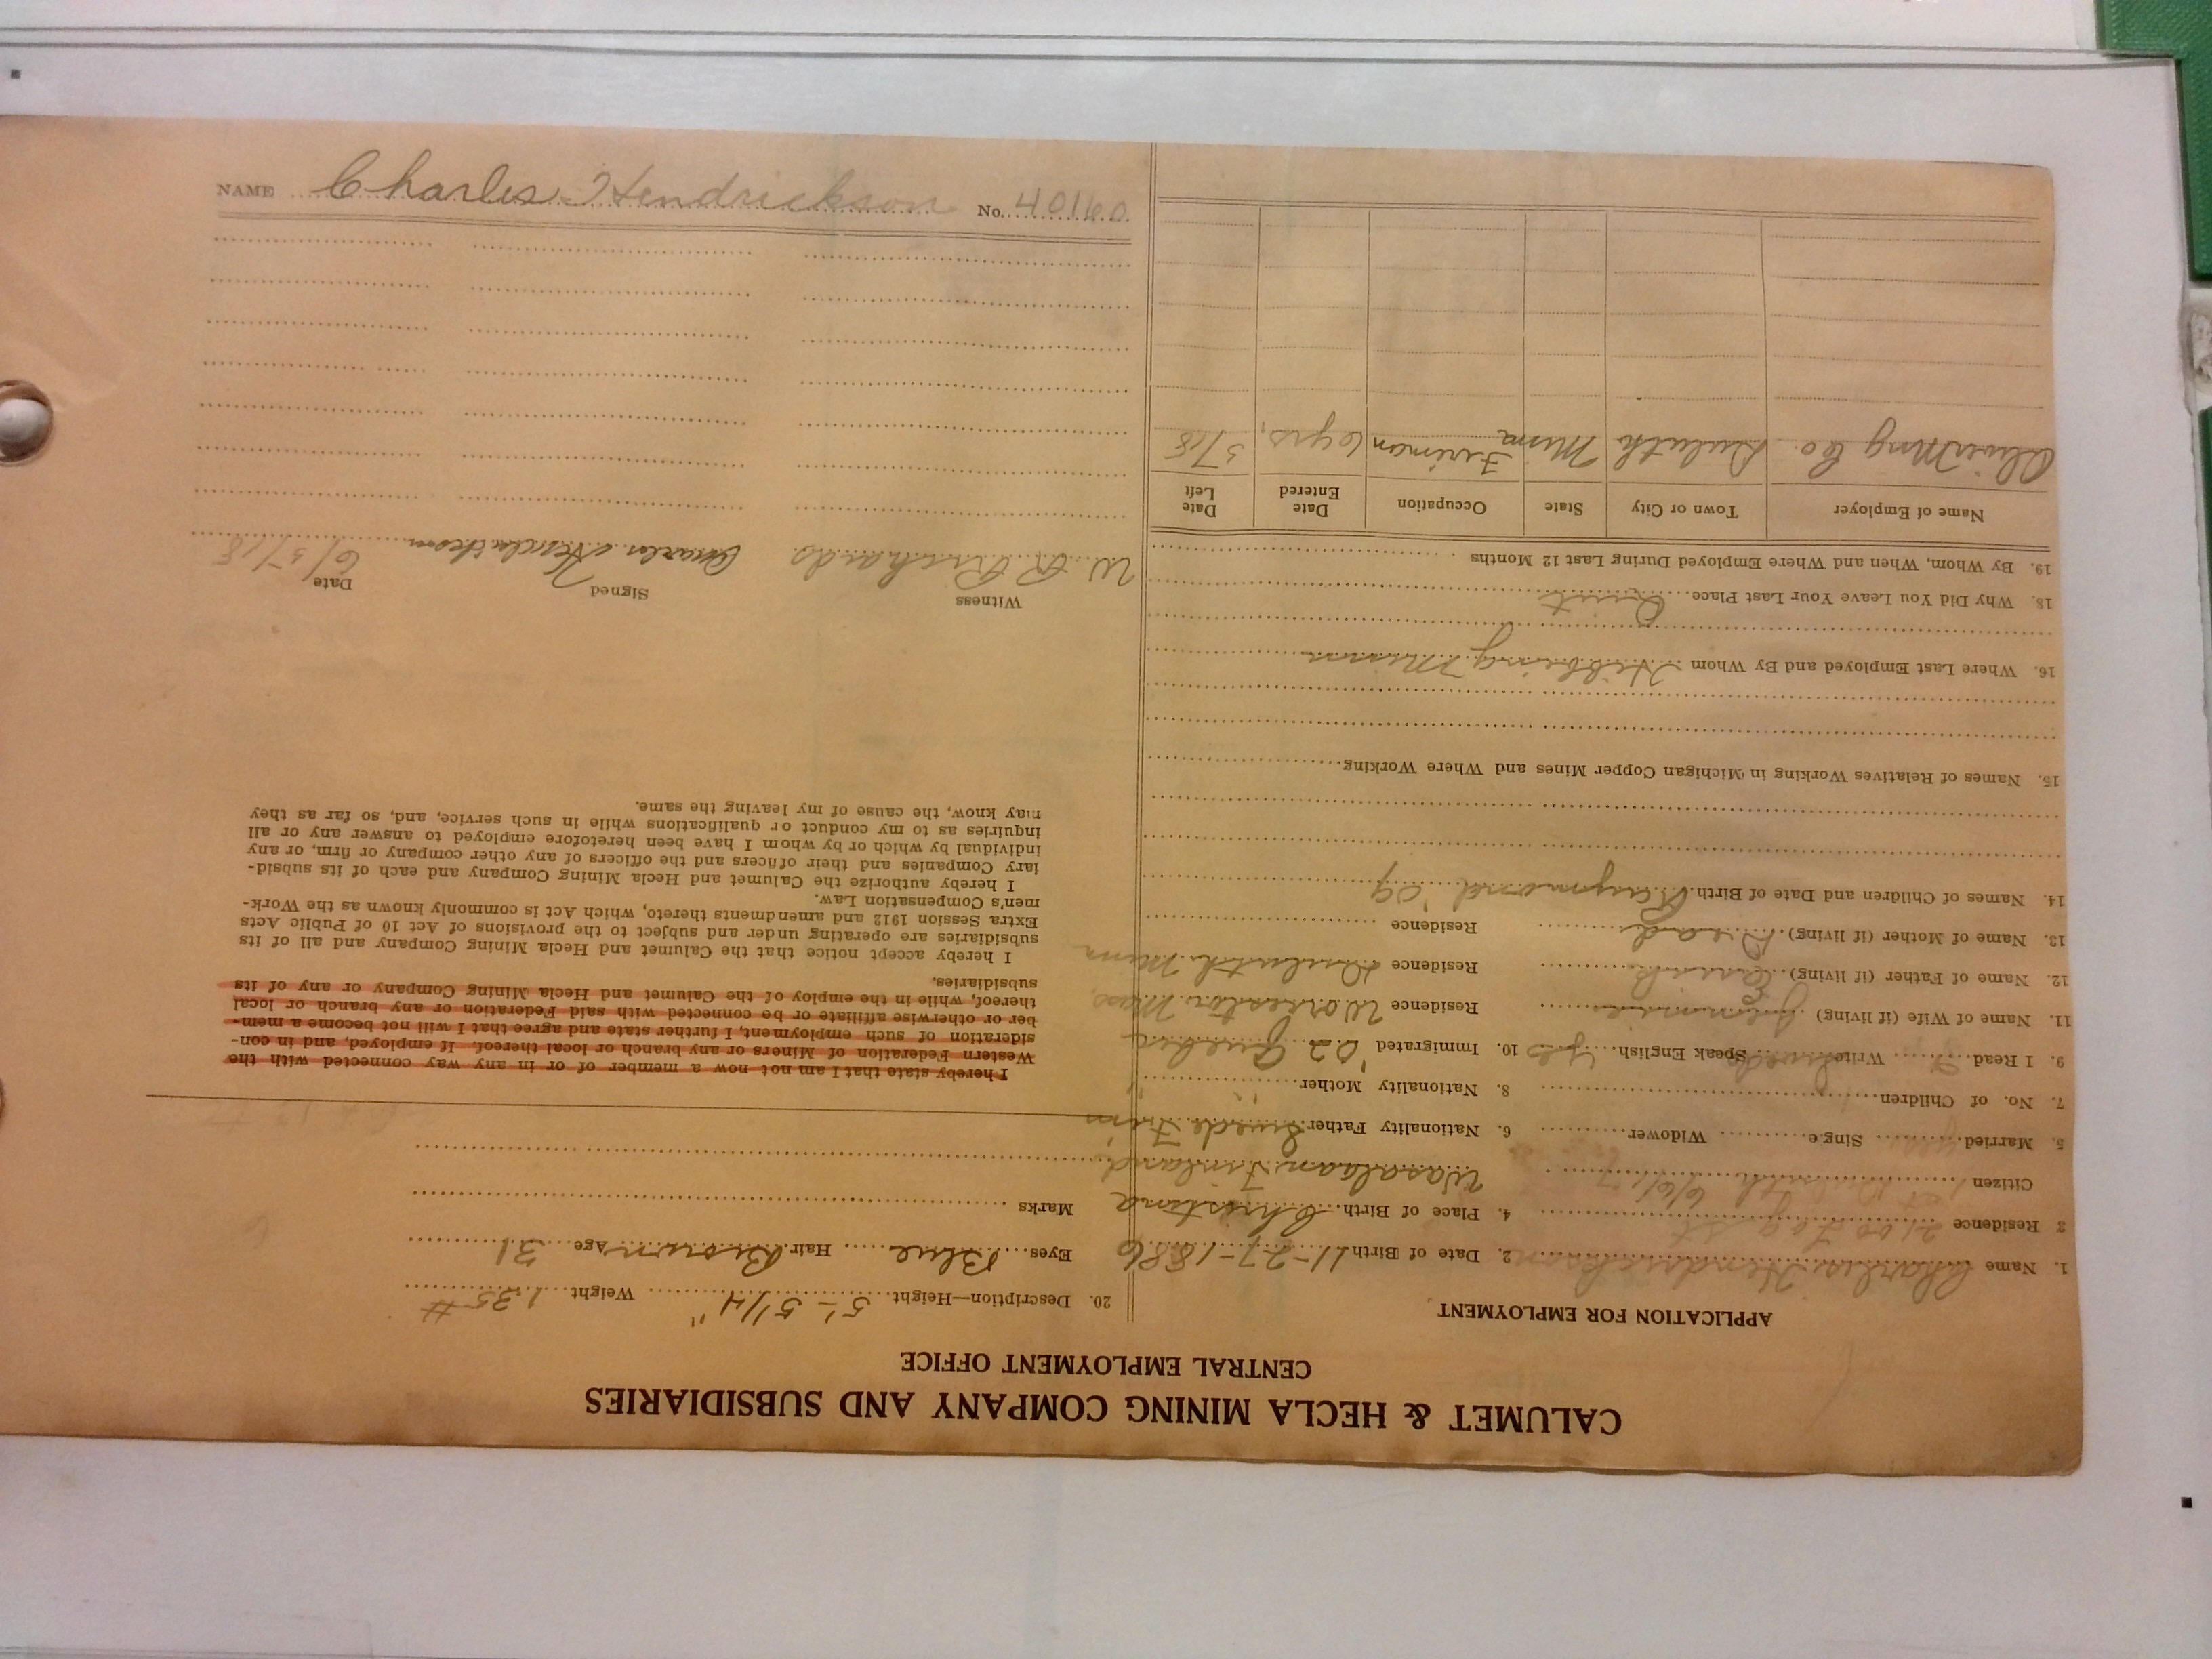 CALUMET & HECLA MINING COMPANY AND SUBSIDIARIES
CENTRAL EMPLOYMENT OFFICE
APPLICATION FOR EMPLOYMENT
1. Name Charles Hendrickson 2. Date of Birth 11-27-1886
3 Residence 2100 St 4. Place of Birth Christina
Citizen 1st 6/6/17 Wasalaan Finland
5. Married yes Single Widower 6. Nationality Father Swede Finn
7. No. of Children 1 8. Nationality Mother " "
9. I Read Write Swede Speak English yes 10. Immigrated '02
11. Name of Wife (if living) Residence Worcester Mass,
12. Name of Father (if living) Residence Duluth Minn
13. Name of Mother (if living) Dead Residence
14. Names of Children and Date of Birth Raymond '09
15. Names of Relatives Working in Michigan Copper Mines and Where Working
16. Where Last Employed and By Whom Hibbing Minn
18. Why Did You Leave Your Last Place Quit
19. By Whom, When and Where Employed During Last 12 Months
Name of Employer Town or City State Occupation Date Entered Date Left
Oliver Mng Co. Duluth Minn Fireman 6 yrs, 5/18
20. Description—Height 5'-5 1/4" Weight 135 #
Eyes Blue Hair Brown Age 31
Marks
I hereby state that I am not now a member of or in any way connected with the
Western Federation of Miners or any branch or local thereof. If employed, and in con-
sideration of such employment, I further state and agree that I will not become a mem-
ber or otherwise affiliate or be connected with said Federation or any branch or local
thereof, while in the employ of the Calumet and Hecla Mining Company or any of its
subsidiaries.
I hereby accept notice that the Calumet and Hecla Mining Company and all of its
subsidiaries are operating under and subject to the provisions of Act 10 of Public Acts
Extra Session 1912 and amendments thereto, which Act is commonly known as the Work-
men's Compensation Law.
I hereby authorize the Calumet and Hecla Mining Company and each of its subsid-
iary Companies and their officers and the officers of any other company or firm, or any
individual by which or by whom I have been heretofore employed to answer any or all
inquiries as to my conduct or qualifications while in such service, and, so far as they
may know, the cause of my leaving the same.
Witness Signed Date
W. R. Richards Charles Hendrickson 6/5/18
NAME Charles Hendrickson No. 40160